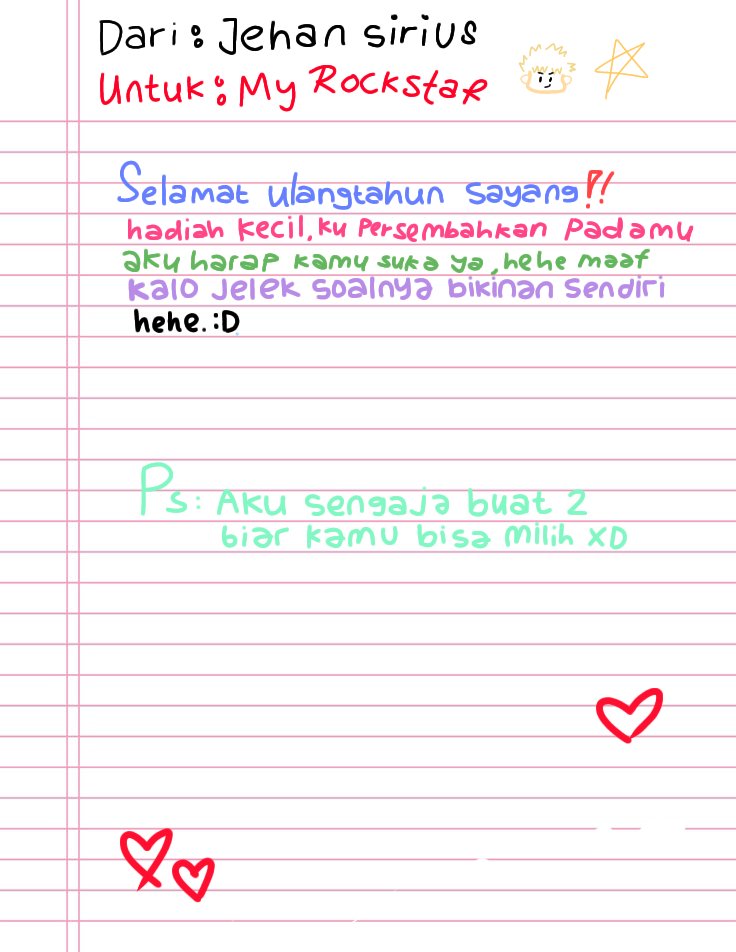 Dari : Jehan sirius
Untuk : My Rockstar
Selamat ulangtahun sayang!!
hadiah kecil, ku persembahkan padamu
aku harap kamu suka ya, hehe maaf
kalo jelek soalnya bikinan sendiri
hehe. :D
Ps : Aku sengaja buat 2
biar kamu bisa milih XD